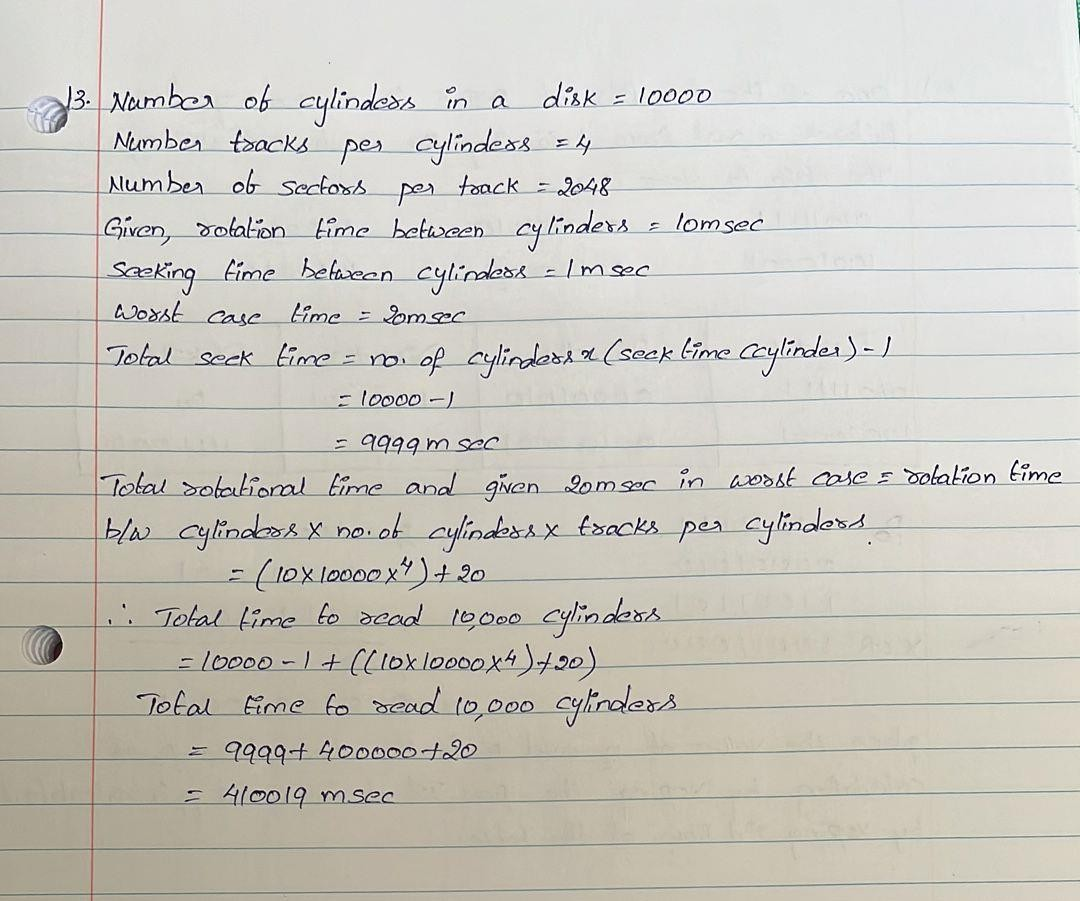 13. Number of cylinders in a disk = 10000
Number tracks per cylinders = 4
Number of sectors per track = 2048
Given, rotation time between cylinders = 10msec
Seeking time between cylinders = 1m sec
Worst case time = 20msec
Total seek time = no. of cylinders x (seek time (cylinder) - 1
= 10000 - 1
= 9999m sec
Total rotational time and given 20msec in worst case = rotation time
b/w cylinders x no. of cylinders x tracks per cylinders.
= (10 x 10000 x 4) + 20
∴ Total time to read 10,000 cylinders
= 10000 - 1 + ((10 x 10000 x 4) + 20)
Total time to read 10,000 cylinders
= 9999 + 400000 + 20
= 410019 msec